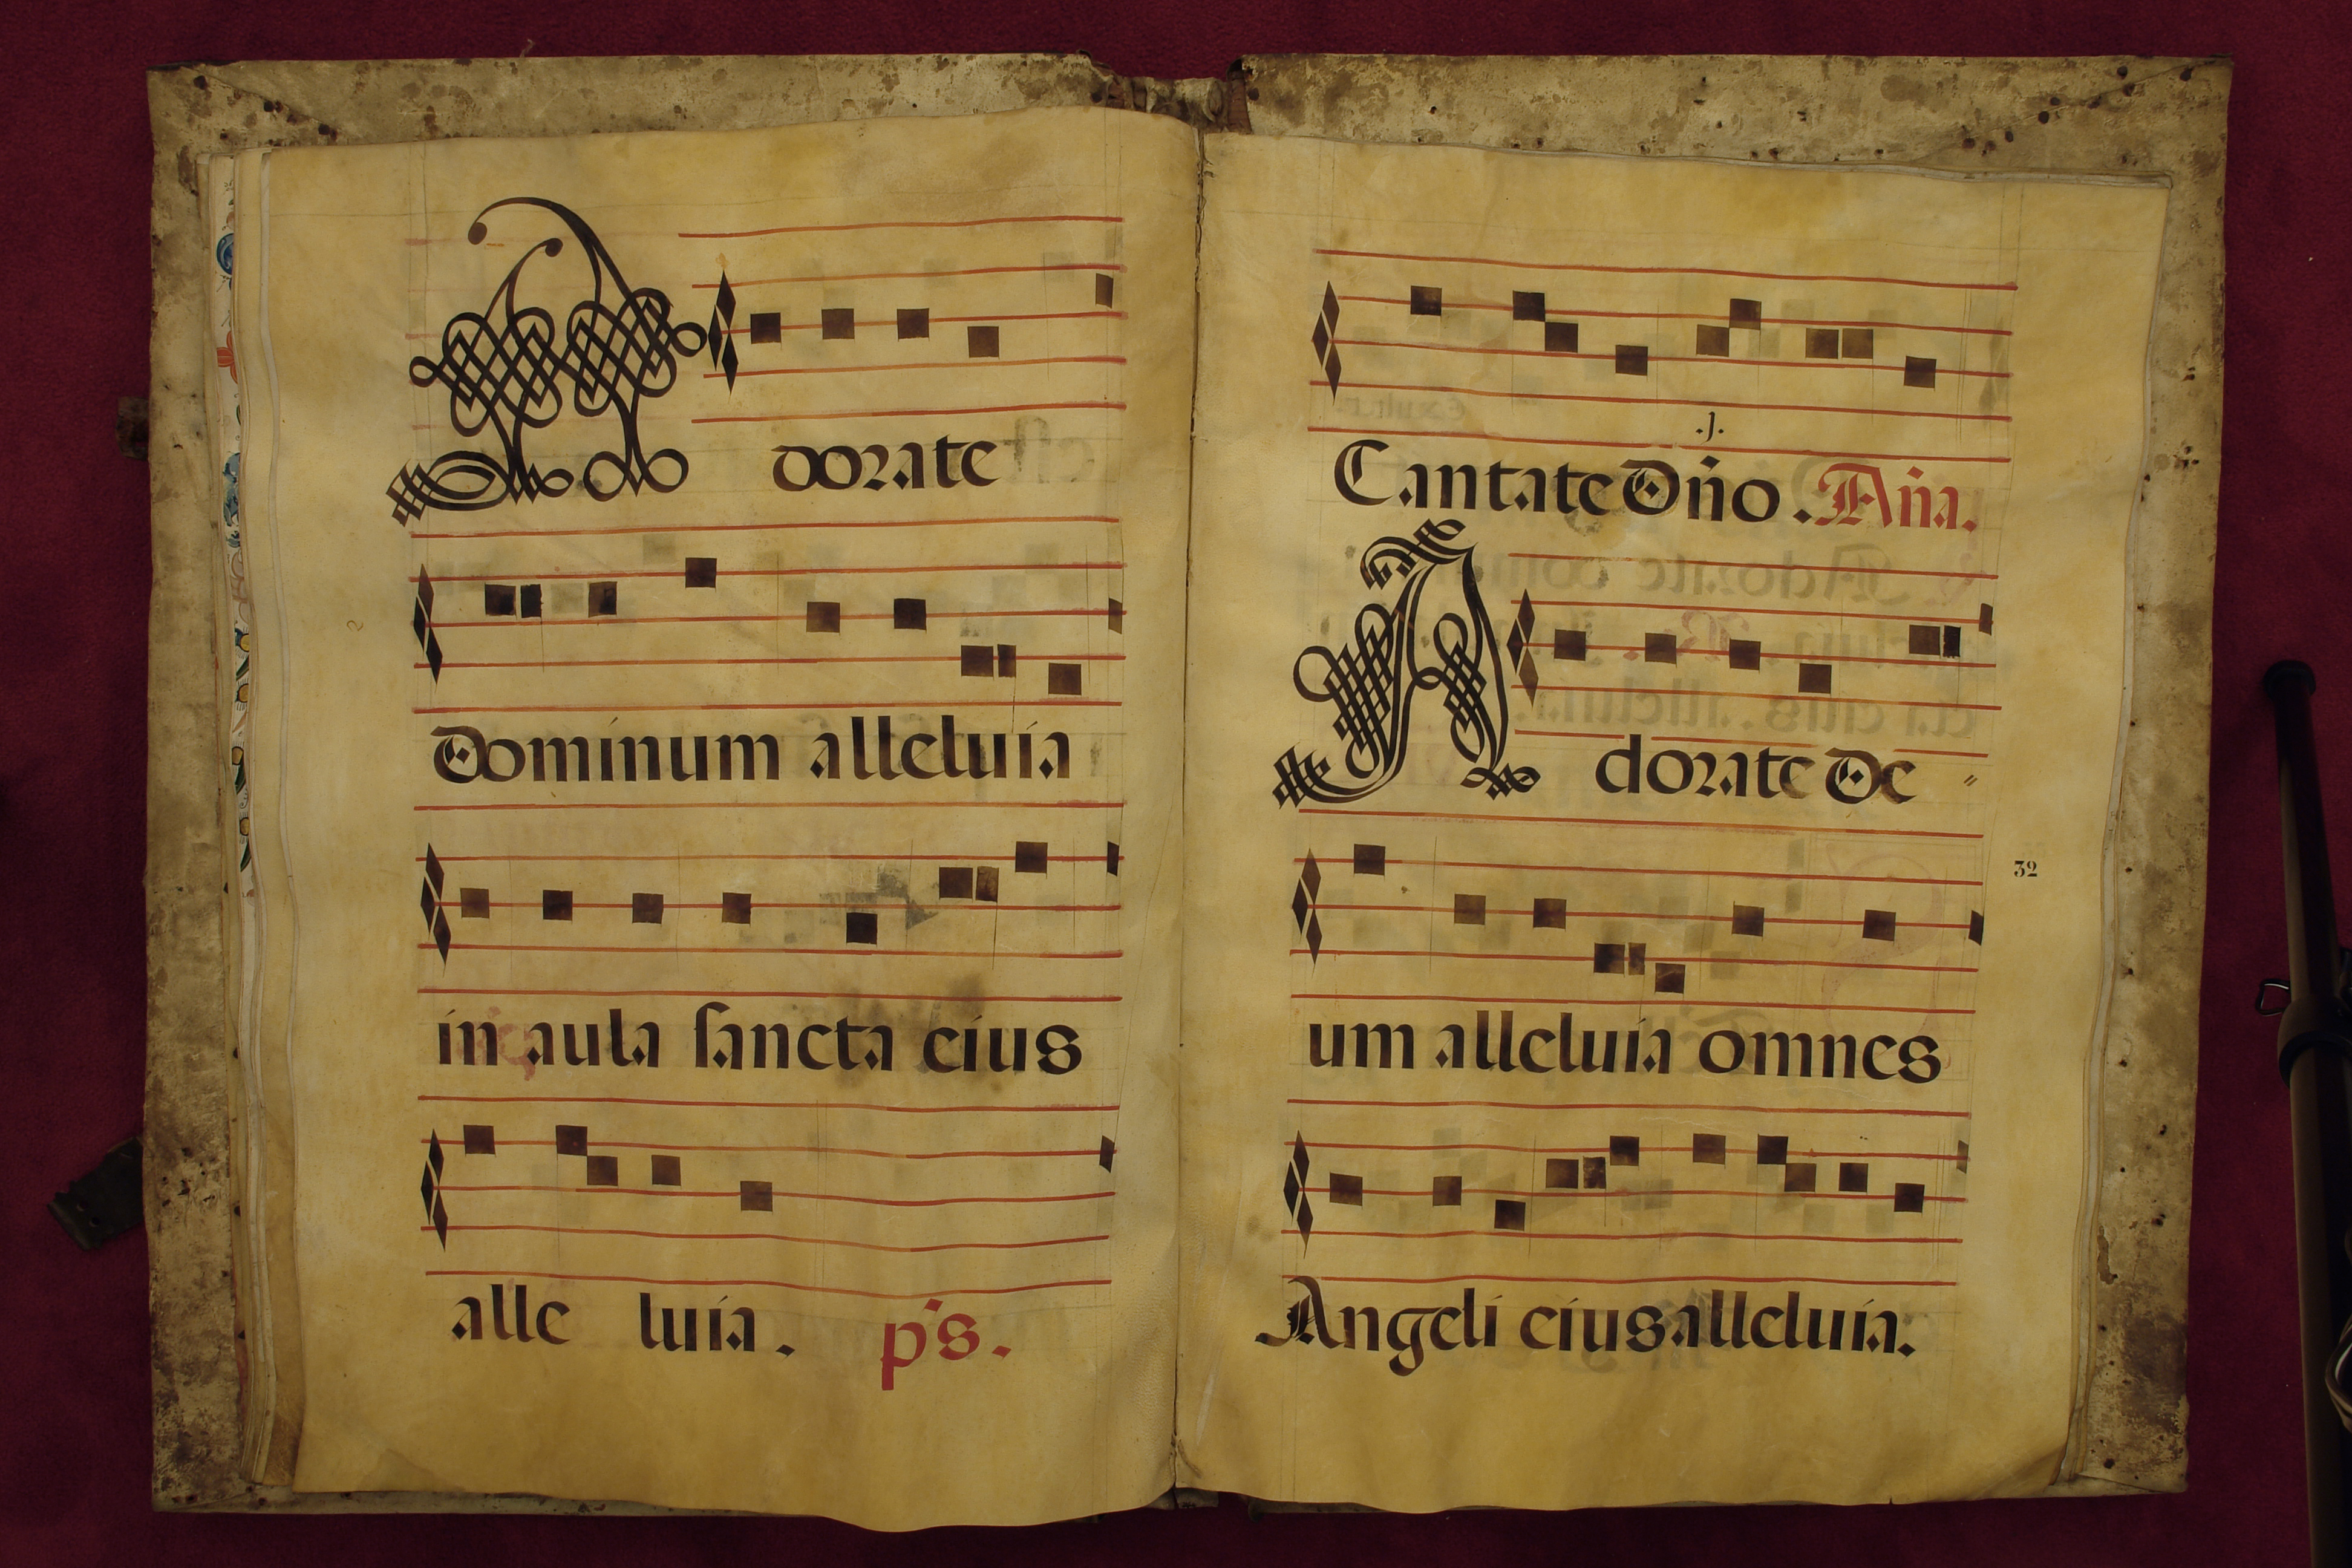 Adorate
Dominum alleluia
in aula sancta eius
alle luia. ps.
.j.
Cantate Dño. Aña.
Adorate De
32
um alleluia omnes
Angeli eius alleluia.